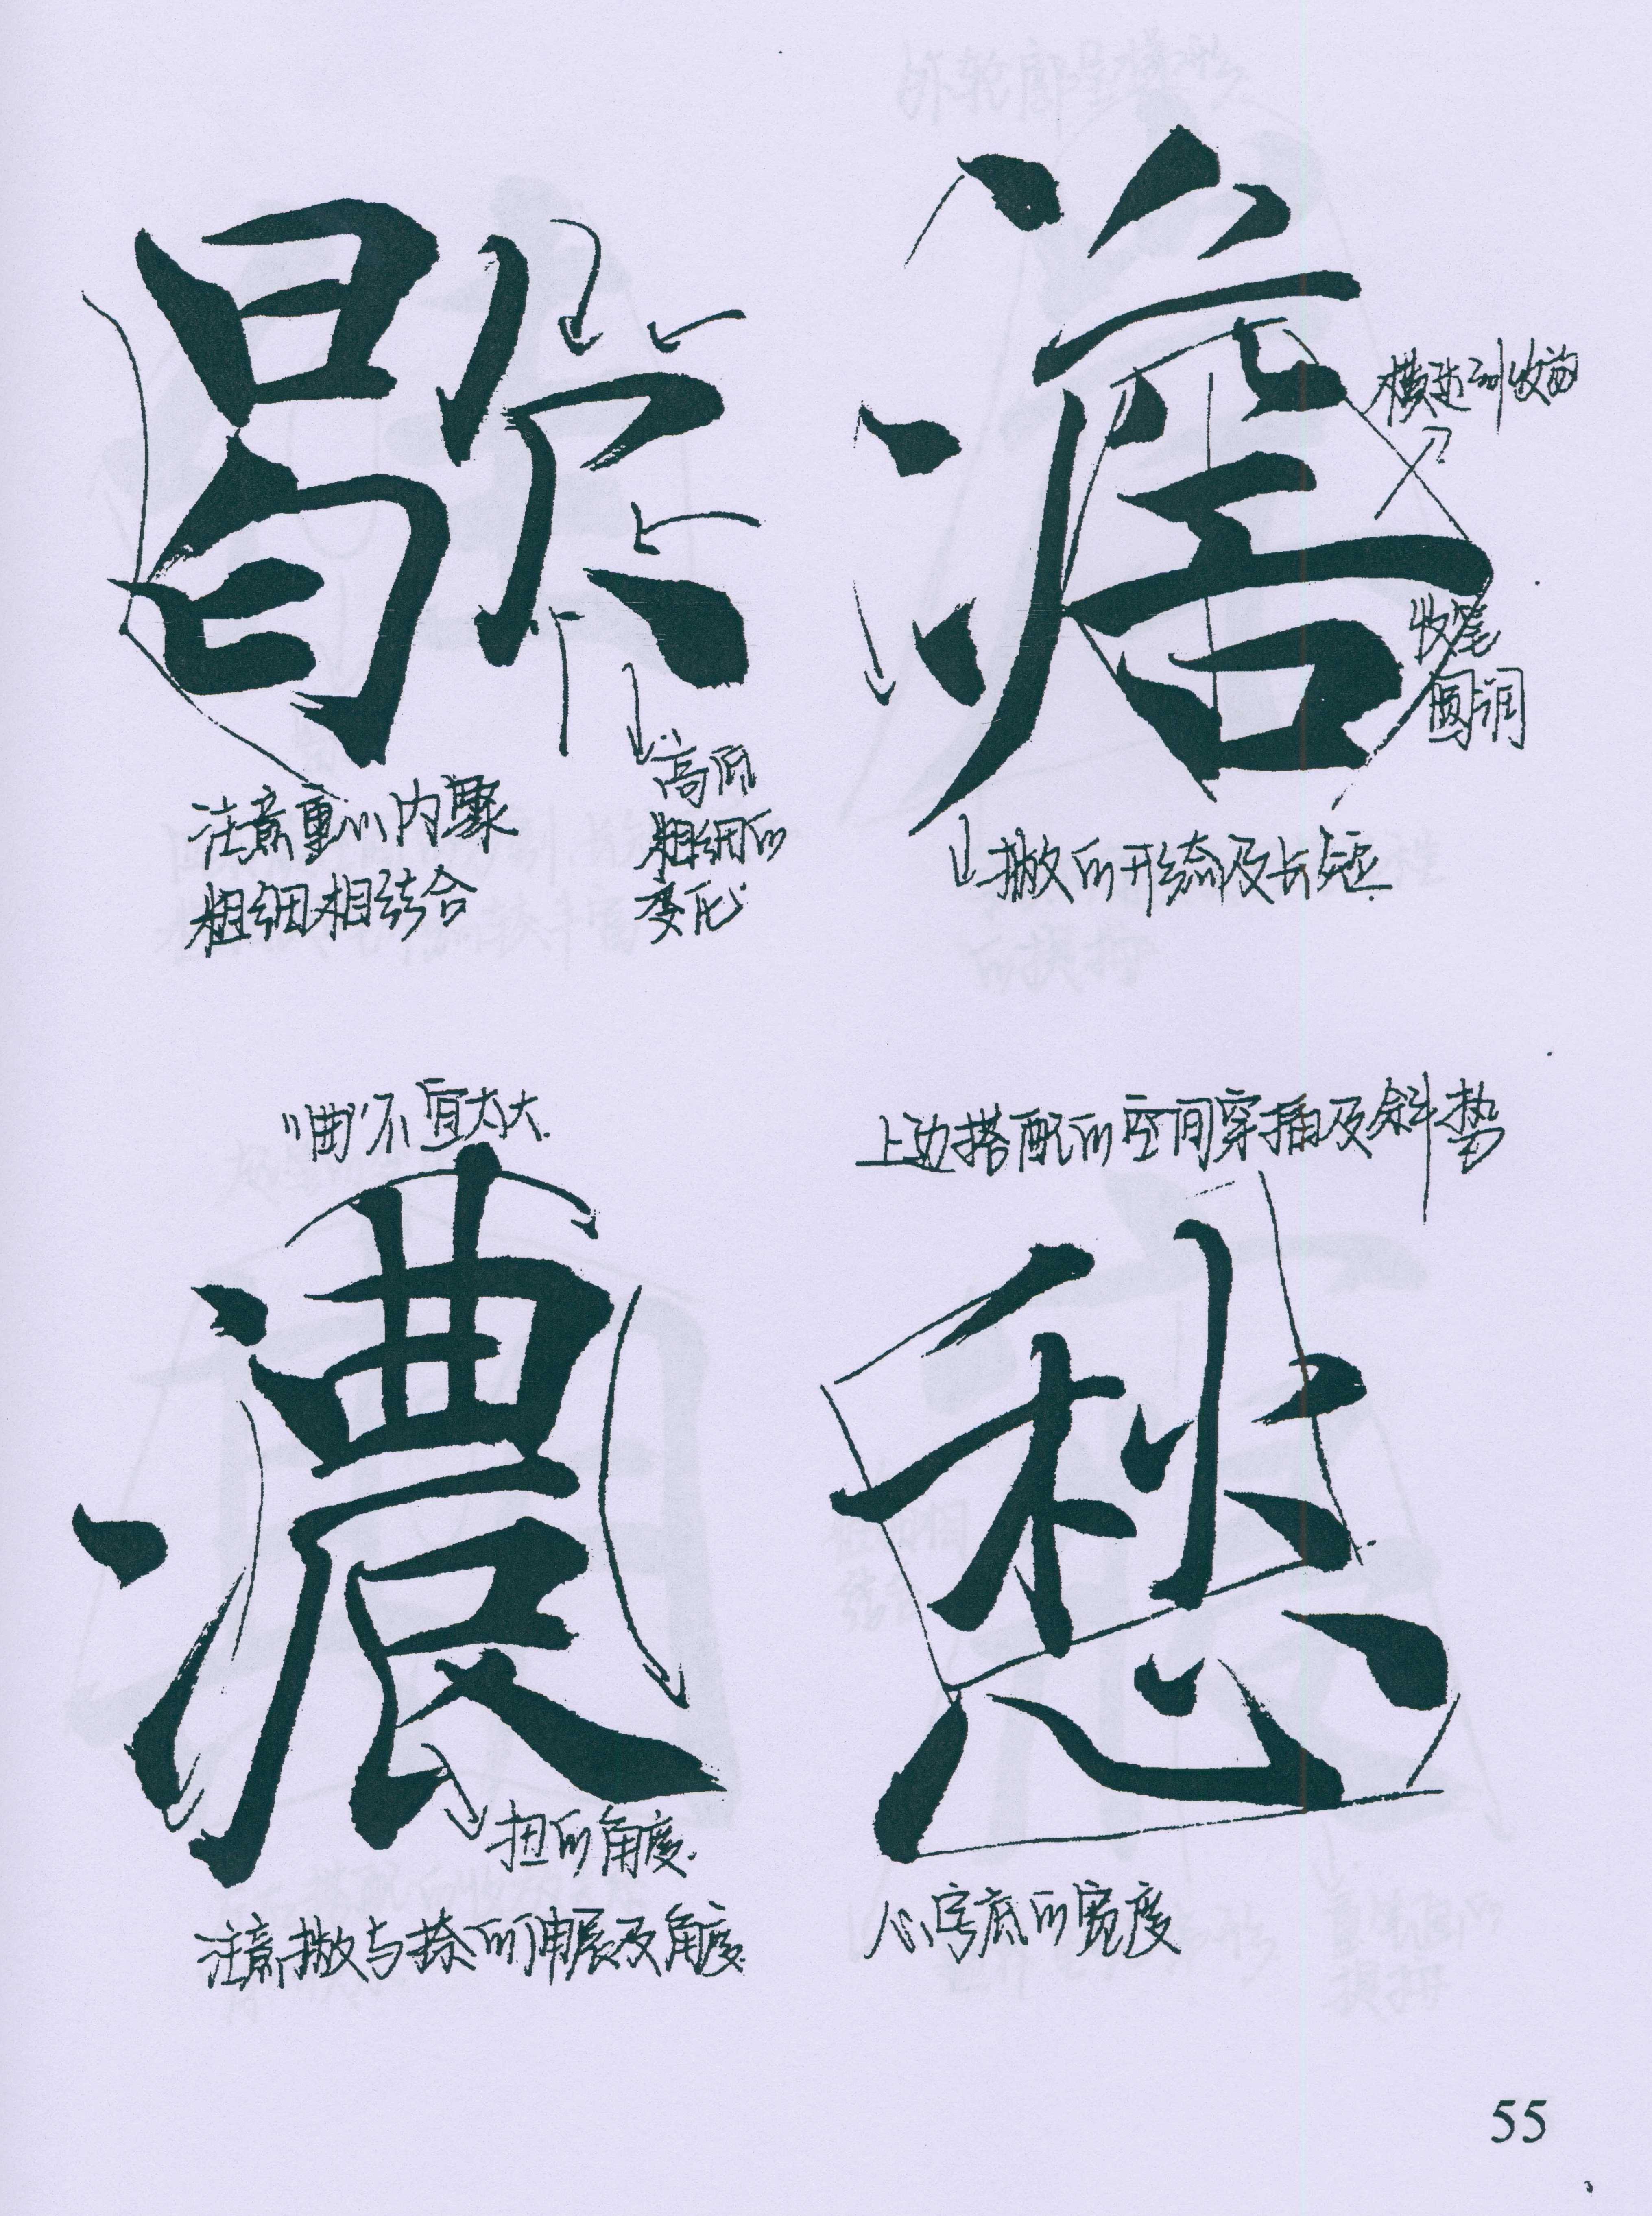 歇
注意重心内聚
粗细相结合
高低
粗细的
变化
澹
收尾
圆润
撇的形态及长短
"曲"不宜太大
濃
扭的角度
注意撇与捺的伸展及角度
上边搭配的空间穿插及斜势
愁
心字底的宽度
55